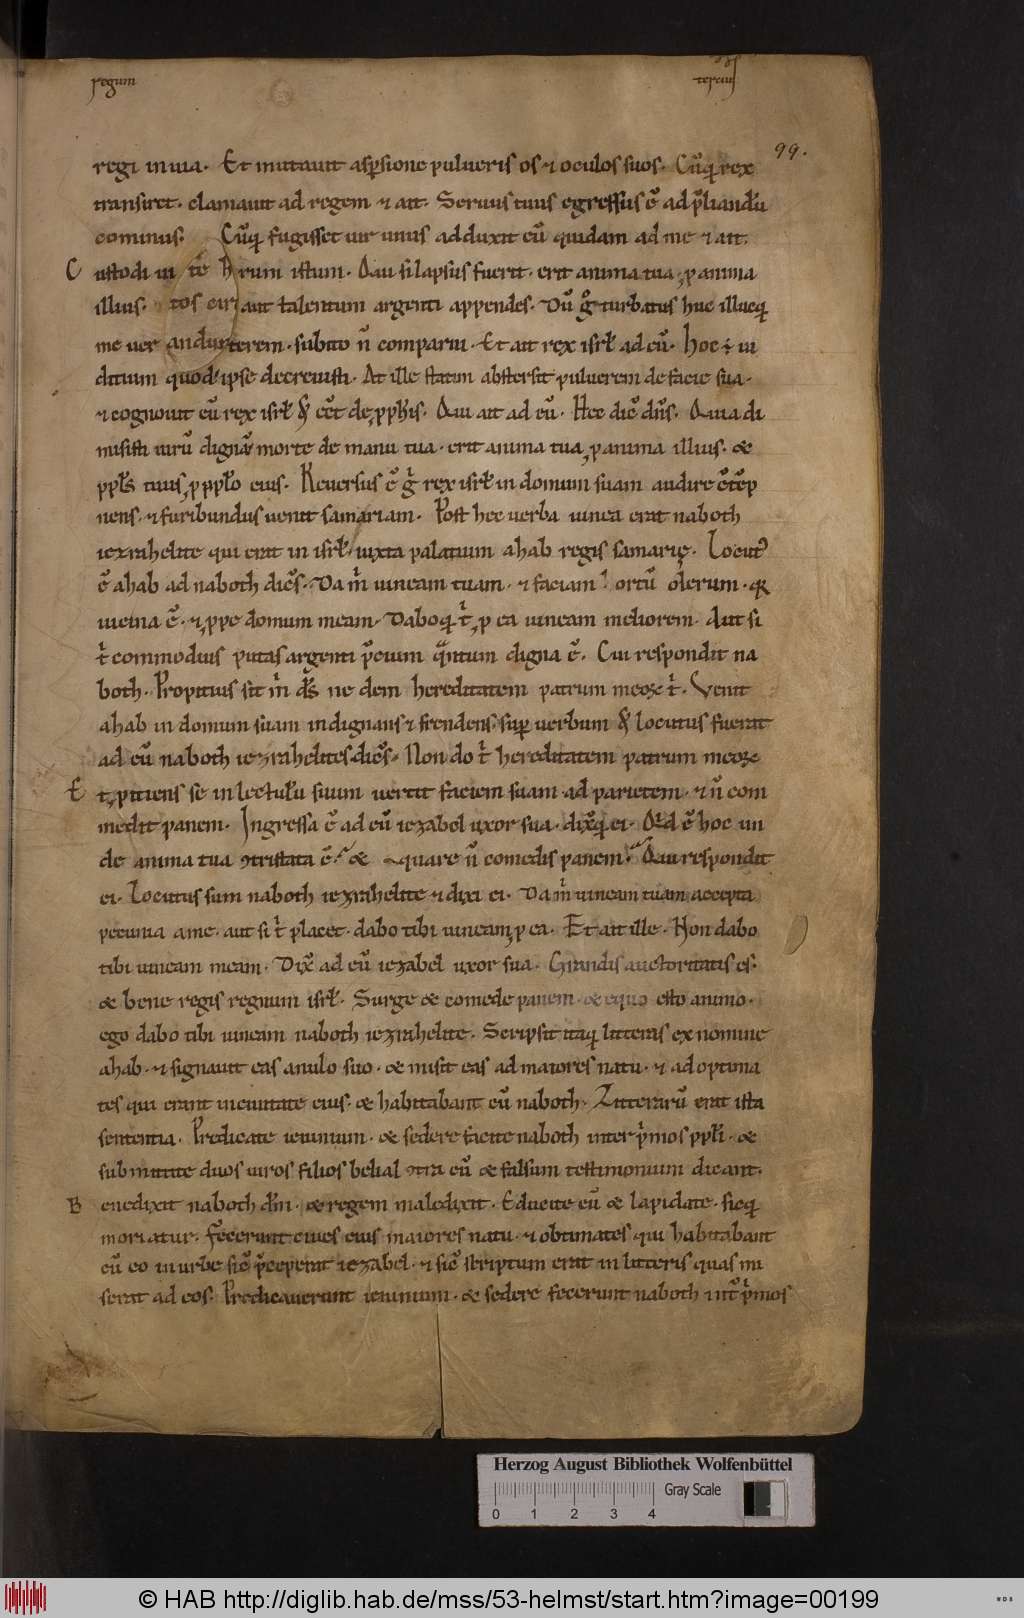 regum
tercius
99.
regi in uia. Et mutauit asp̄sione pulueris os ⁊ oculos suos. Cūq; rex
transiret. clamauit ad regem ⁊ ait. Seruus tuus egressus ē ad p̄liandū
cominus. Cūq; fugisset uir unus adduxit eū quidam ad me ⁊ ait.
Custodi uirum istum. Qui si lapsus fuerit. erit anima tua ꝓ anima
illius. aut talentum argenti appendes. Dū g̊ turbatus huc illucq;
me uerterem. subito n̄ comparuit. Et ait rex isrł ad eū. Hoc ē iu
dicium quod ipse decreuisti. At ille statim abstersit puluerem de facie sua.
⁊ cognouit eū rex isrł qđ eēt de ꝓph̄is. Qui ait ad eū. Hec dic̄ dn̄s. Quia di
misisti uirū dignū morte de manu tua. erit anima tua ꝓ anima illius. &
ppls̄ tuus ꝓ ppl̄o eius. Reuersus ē g̊ rex isrł in domum suam audire ctēp
nens. ⁊ furibundus uenit samariam. Post hec uerba uinea erat naboth
iezrahelite qui erat in isrł. iuxta palatium ahab regis samarię. Locut᾽
ē ahab ad naboth dic̄s. Da m̄ uineam tuam. ⁊ faciam ortū olerum. q;
uicina ē. ⁊ ꝓpe domum meam. Daboq; t̄ ꝓ ea uineam meliorem. Aut si
t̄ commodius putas argenti p̄cium q̄ntum digna ē. Cui respondit na
both. Propitius sit m̄ ds̄ ne dem hereditatem patrum meoꝝ t̄. Venit
ahab in domum suam indignans ⁊ frendens sup uerbum qđ locutus fuerat
ad eū naboth iezrahelites dic̄s. Non do t̄ hereditatem patrum meoꝝ
Et ꝓitiens se in lectulū suum uertit faciem suam ad parietem. ⁊ n̄ com
medit panem. Ingressa ē ad eū iezabel uxor sua. dixq; ei. Qid ē hoc un
de anima tua ꝯtristata ē. & quare n̄ comedis panem. Qui respondit
ei. Locutus sum naboth iezrahelite ⁊ dixi ei. Da m̄ uineam tuam accepta
pecunia a me. aut si t̄ placet. dabo tibi uineam ꝓ ea. Et ait ille. Non dabo
tibi uineam meam. Dix̄ ad eū iezabel uxor sua. Grandis auctoritatis es.
& bene regis regnum isrł. Surge & comede panem. & equo esto animo.
ego dabo tibi uineam naboth iezrahelite. Scripsit itaq; litteras ex nomine
ahab. ⁊ signauit eas anulo suo. & misit eas ad maiores natu. ⁊ ad optima
tes qui erant in ciuitate eius. & habitabant cū naboth. Litterarū erat ista
sententia. Predicate ieiunium. & sedere facite naboth inter p̄mos ppłi. &
submittite duos uiros filios belial ꝯtra eū & falsum testimonium dicant.
Benedixit naboth dm̄. & regem maledixit. Educite eū & lapidate. sicq;
moriatur. Fecerunt ciues eius maiores natu. ⁊ obtimates qui habitabant
cū eo in urbe sic̄ p̄ceperat iezabel. ⁊ sic̄ scriptum erat in litteris quas mi
serat ad eos. Predicauerunt ieiunium. & sedere fecerunt naboth int̄ p̄mos
Herzog August Bibliothek Wolfenbüttel
Gray Scale
0 1 2 3 4
© HAB http://diglib.hab.de/mss/53-helmst/start.htm?image=00199